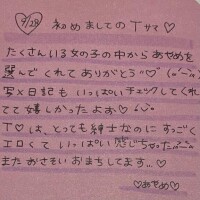 7/28
初めましてのTサマ♡
たくさんいる女の子の中からあせめを
選んでくれてありがとう♡
写メ日記もいっぱいチェックしてくれ
てて嬉しかったよぉ♡
T♡は、とっても紳士なのにすっごく
エロくていっぱい感じちゃった
またおさそいおまちしてます...♡
♡あせめ♡